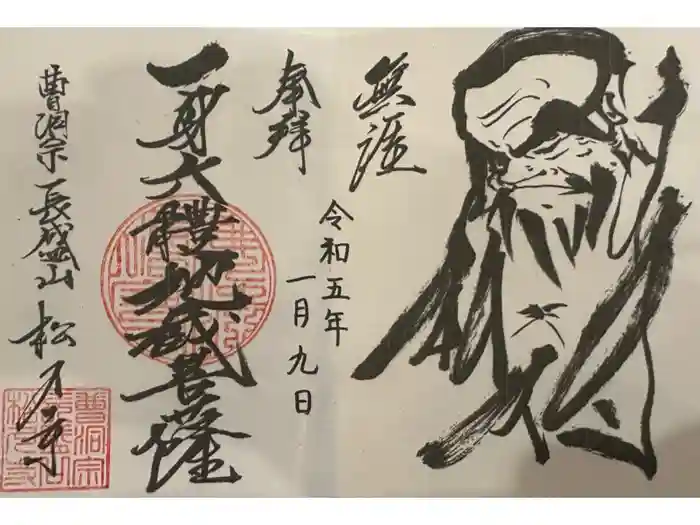 無涯
奉拝
令和五年
一月九日
一身六體地蔵菩薩
曹洞宗長盛山松月寺
曹洞宗